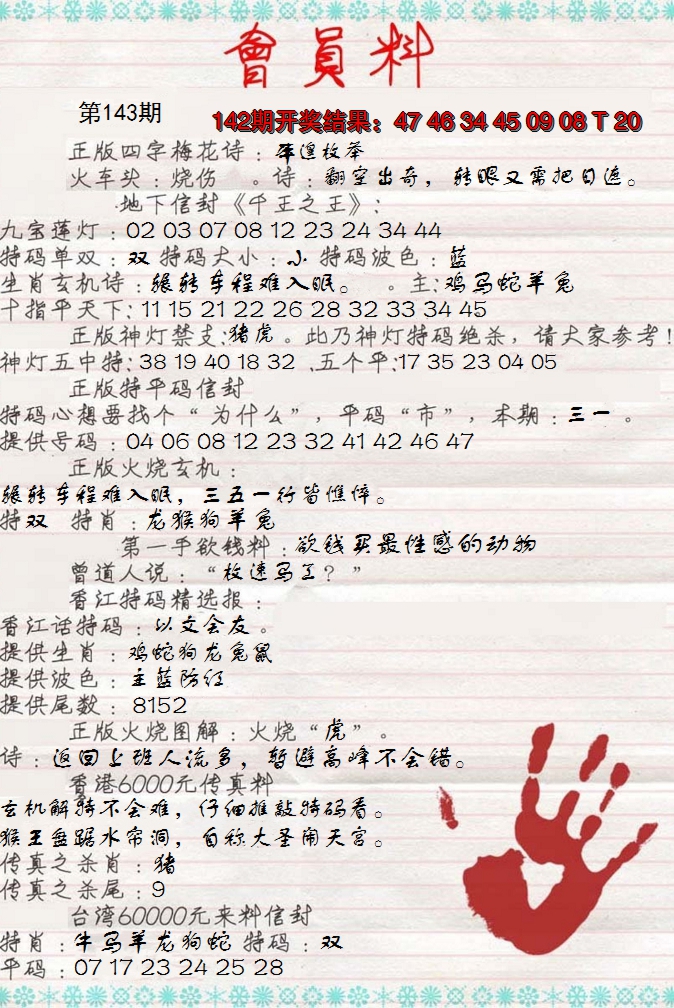 會員料
第143期
142期开奖结果：47 46 34 45 09 08 T 20
正版四字梅花诗：
火车头：烧伤 。诗：翻空出奇，转眼又需把日遮。
地下信封《千王之王》：
九宝莲灯：02 03 07 08 12 23 24 34 44
特码单双：双 特码大小：小 特码波色：蓝
生肖玄机诗：辗转车程难入眠。 。主：鸡马蛇羊兔
十指平天下：11 15 21 22 26 28 32 33 34 45
正版神灯禁支：猪虎。此乃神灯特码绝杀，请大家参考！
神灯五中特：38 19 40 18 32 .五个平：17 35 23 04 05
正版特平码信封
特码心想要找个“为什么”，平码“市”，本期：三一。
提供号码：04 06 08 12 23 32 41 42 46 47
正版火烧玄机：
辗转车程难入眠，三五一行皆憔悴。
特双 特肖：龙猴狗羊兔
第一手欲钱料：欲钱买最性感的动物
曾道人说：“枚速马工？”
香江特码精选报：
香江话特码：以文会友。
提供生肖：鸡蛇狗龙兔鼠
提供波色：主蓝防红
提供尾数：8152
正版火烧图解：火烧“虎”。
诗：返回上班人流多，暂避高峰不会错。
香港6000元传真料
玄机解骑不会难，仔细推敲特码看。
猴王盘踞水帘洞，自称大圣闹天宫。
传真之杀肖：猪
传真之杀尾：9
台湾60000元来料信封
特肖：牛马羊龙狗蛇 特码：双
平码：07 17 23 24 25 28